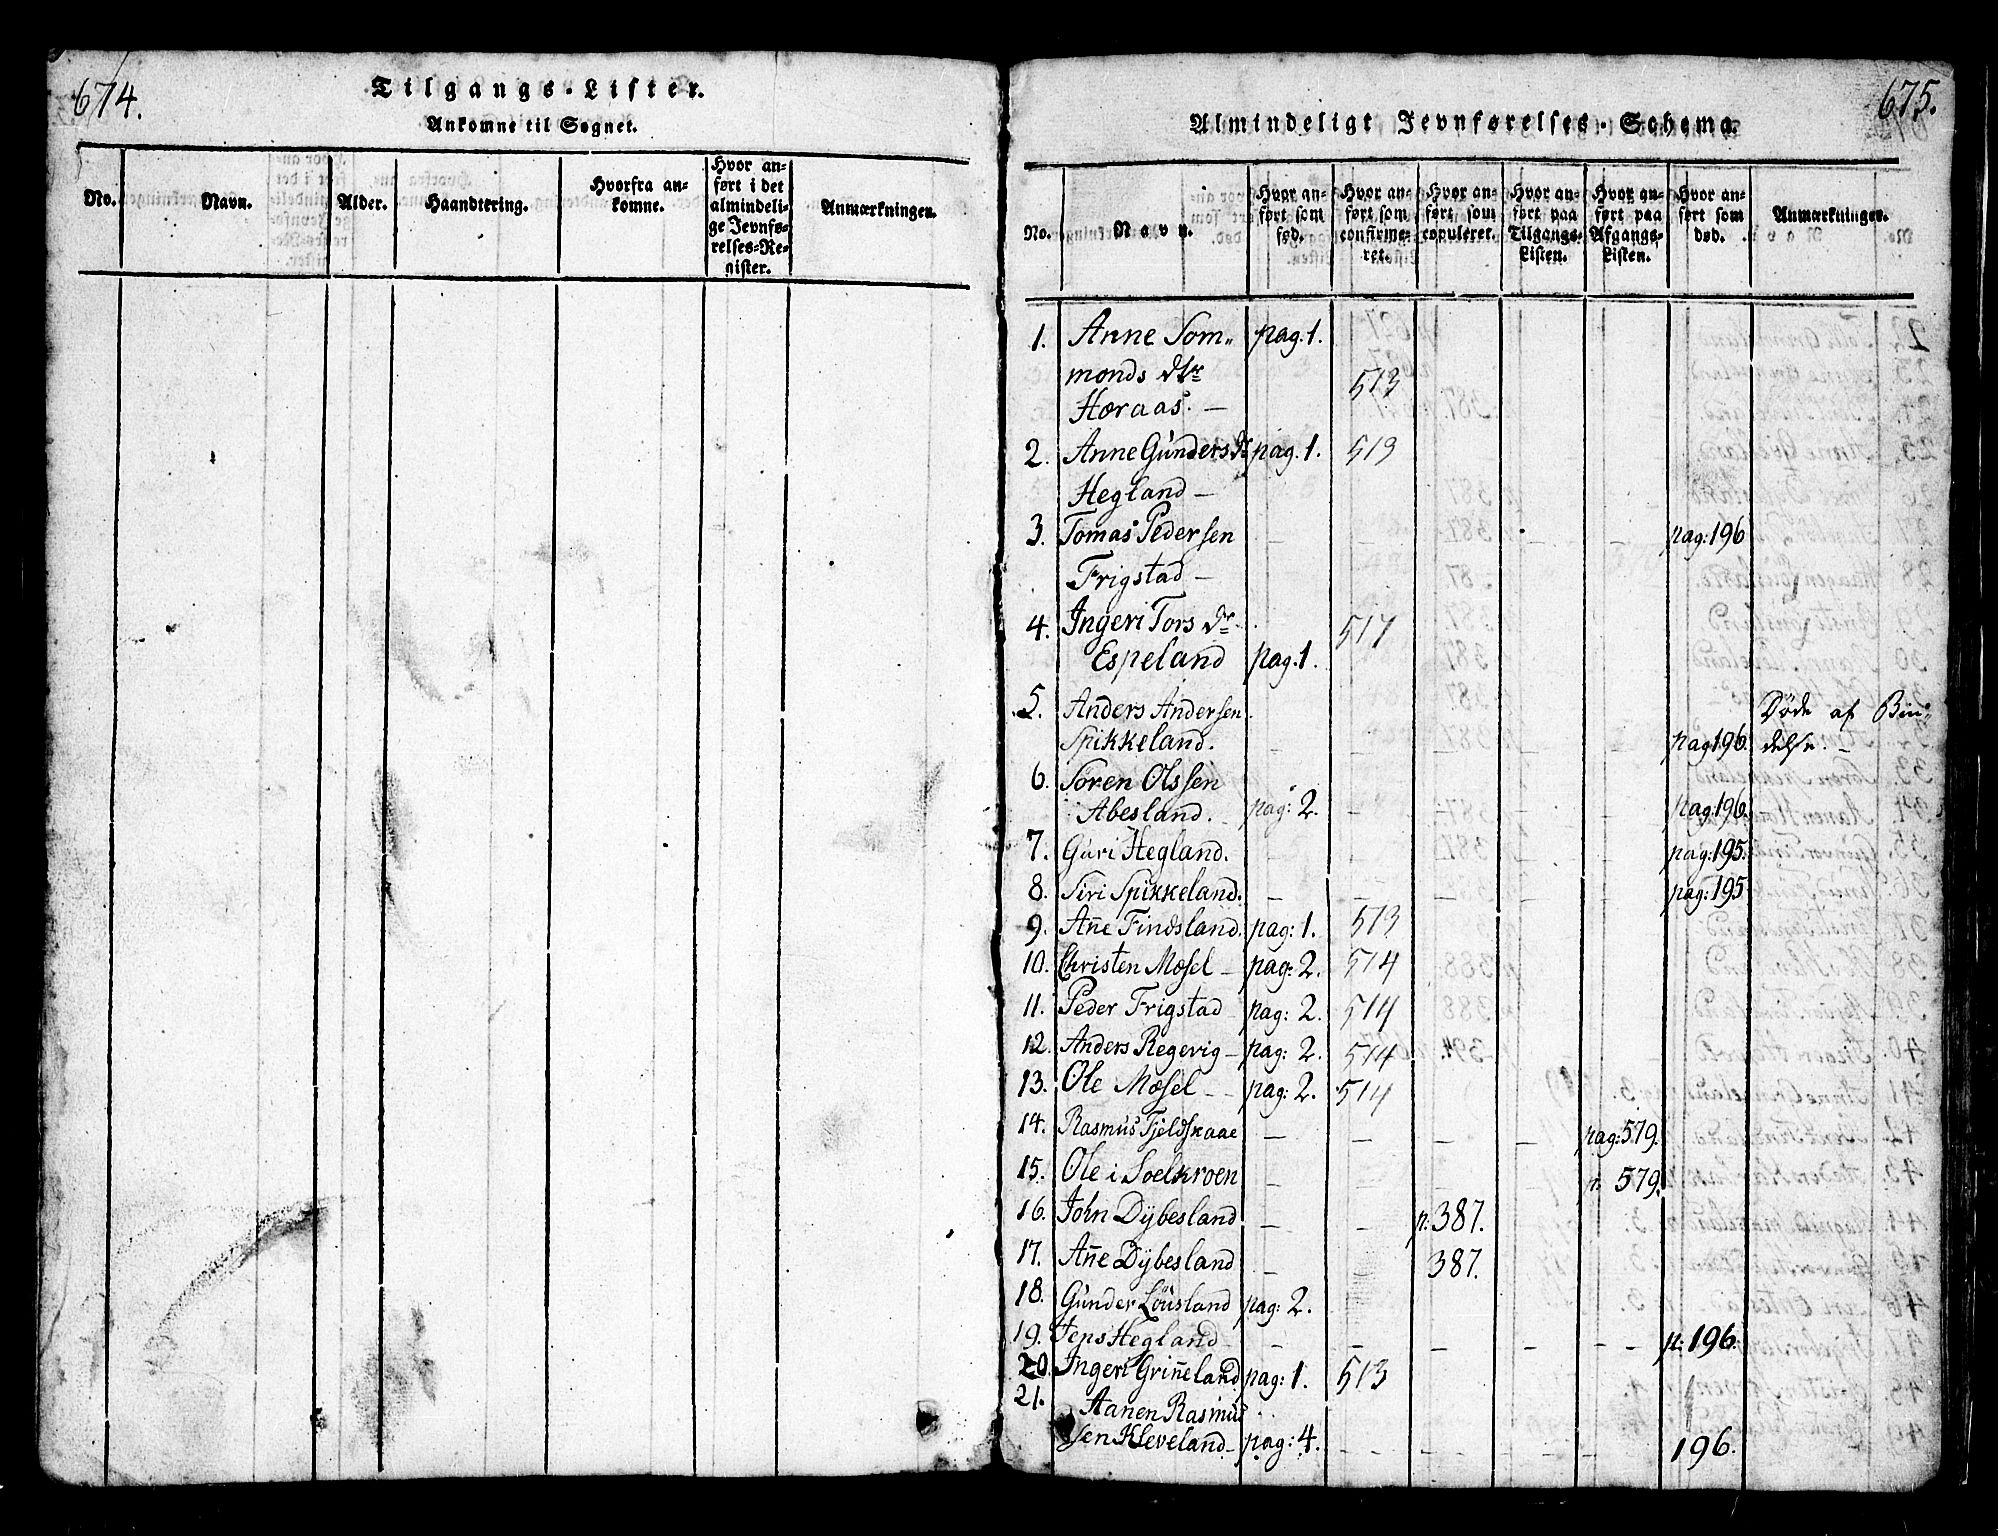 674.
Tilgangs-Lister.
Ankomne til Sognet.
No.
Navn.
Alder.
Haandtering.
Hvorfra an-
komne.
Hvor an-
ført i det
almindeli-
ge Jevnfø-
relses-Re-
gister.
Anmærkninger.
675.
Almindeligt Jevnførelses-Schema.
No.
Navn.
Hvor an-
ført som
fød.
Hvor an-
ført som
confirme-
ret.
Hvor an-
ført som
copuleret.
Hvor an-
ført paa
Tilgangs-
Listen.
Hvor an-
ført paa
Afgangs-
Listen.
Hvor an-
ført som
død.
Anmærkninger.
1. Anne Som„ pag. 1.
monds dtr 513
Høraas. —
2. Anne Gunders dr pag. 1. 513
Hegland —
3. Tomas Pedersen — — — — — pag: 196
Frigstad —
4. Ingeri Tors dr 517
Espeland pag. 1.
5. Anders Andersen Døde af Bin-
Spikkeland. — — pag 196. delse. —
6. Søren Olssen
Abesland. pag: 2. — — pag 196.
7. Guri Hegland. pag: 195.
8. Siri Spikkeland. — — — — — pag: 195
9. Añe Findsland. pag: 1. 513
10. Christen Mosel — pag: 2. 514
11. Peder Frigstad pag: 2. 514
12. Anders Regevig — pag: 2. 514
13. Ole Mosel — pag: 2. 514
14. Rasmus Fjeldskaae — — — — pag: 579.
15. Ole i Soelkroen — — — — p. 579.
16. John Dybesland — — p. 387.
17. Añe Dybesland — 387.
18. Gunder Löusland pag: 2.
19. Jens Hegland — — — — — — p: 196.
20. Ingeri Griñeland pag: 1. 513
21. Aanen Rasmus
sen Kleveland — pag: 4. — — — — 196.